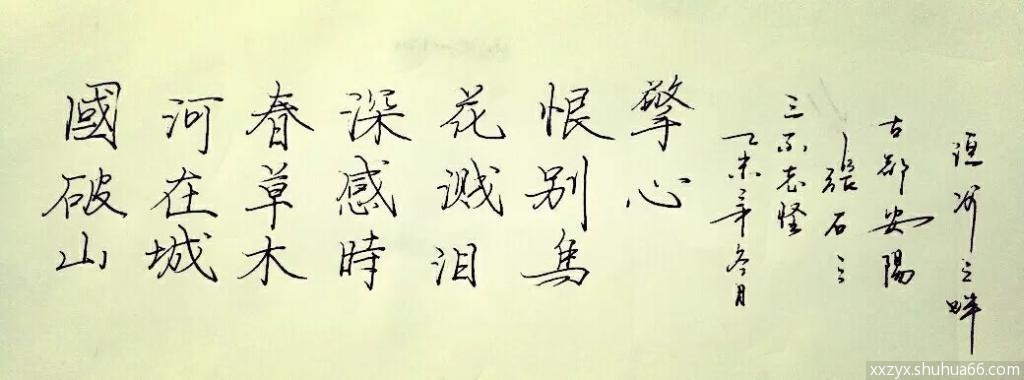 國破山
河在城
春草木
深感時
花溅泪
恨别鳥
擎心
乙未年冬月
三不老怪
張石三
古都安陽
洹河之畔
xxzyx.shuhua66.com